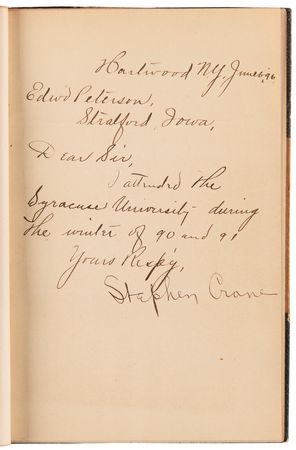 Hartwood N.Y, June 6, 96
Edwd Peterson,
Stratford, Iowa,
Dear Sir,
I attended the
Syracuse University during
the winter of 90 and 91
Yours Resp'y,
Stephen Crane